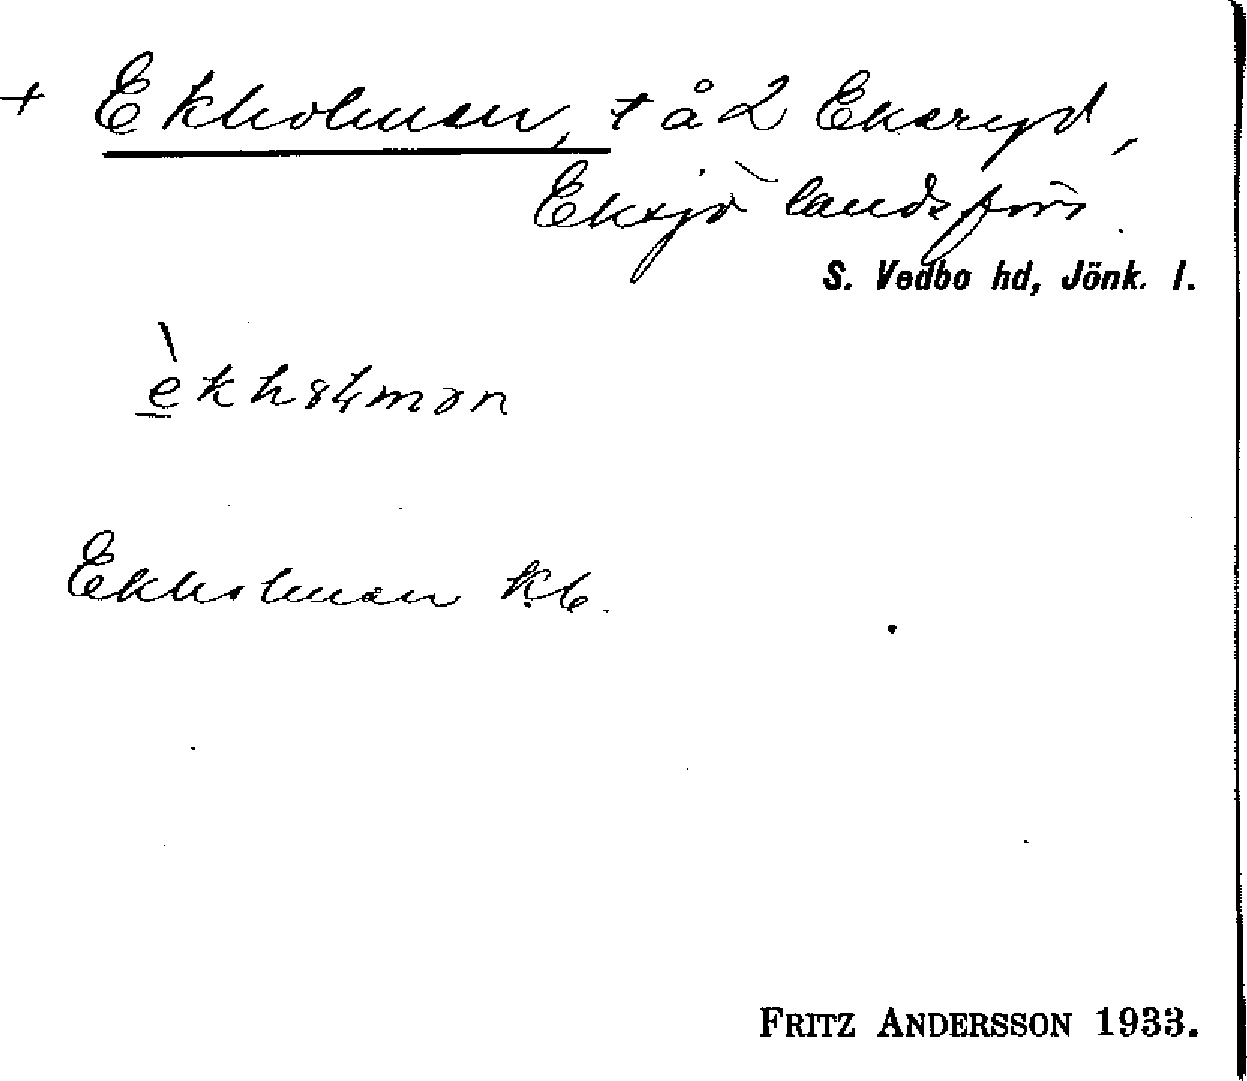 + Ekholmen, + å 2 Ekaryd,
Eksjö landsförs.
S. Vedbo hd, Jönk. l.
Ekholmen kb.
FRITZ ANDERSSON 1933.